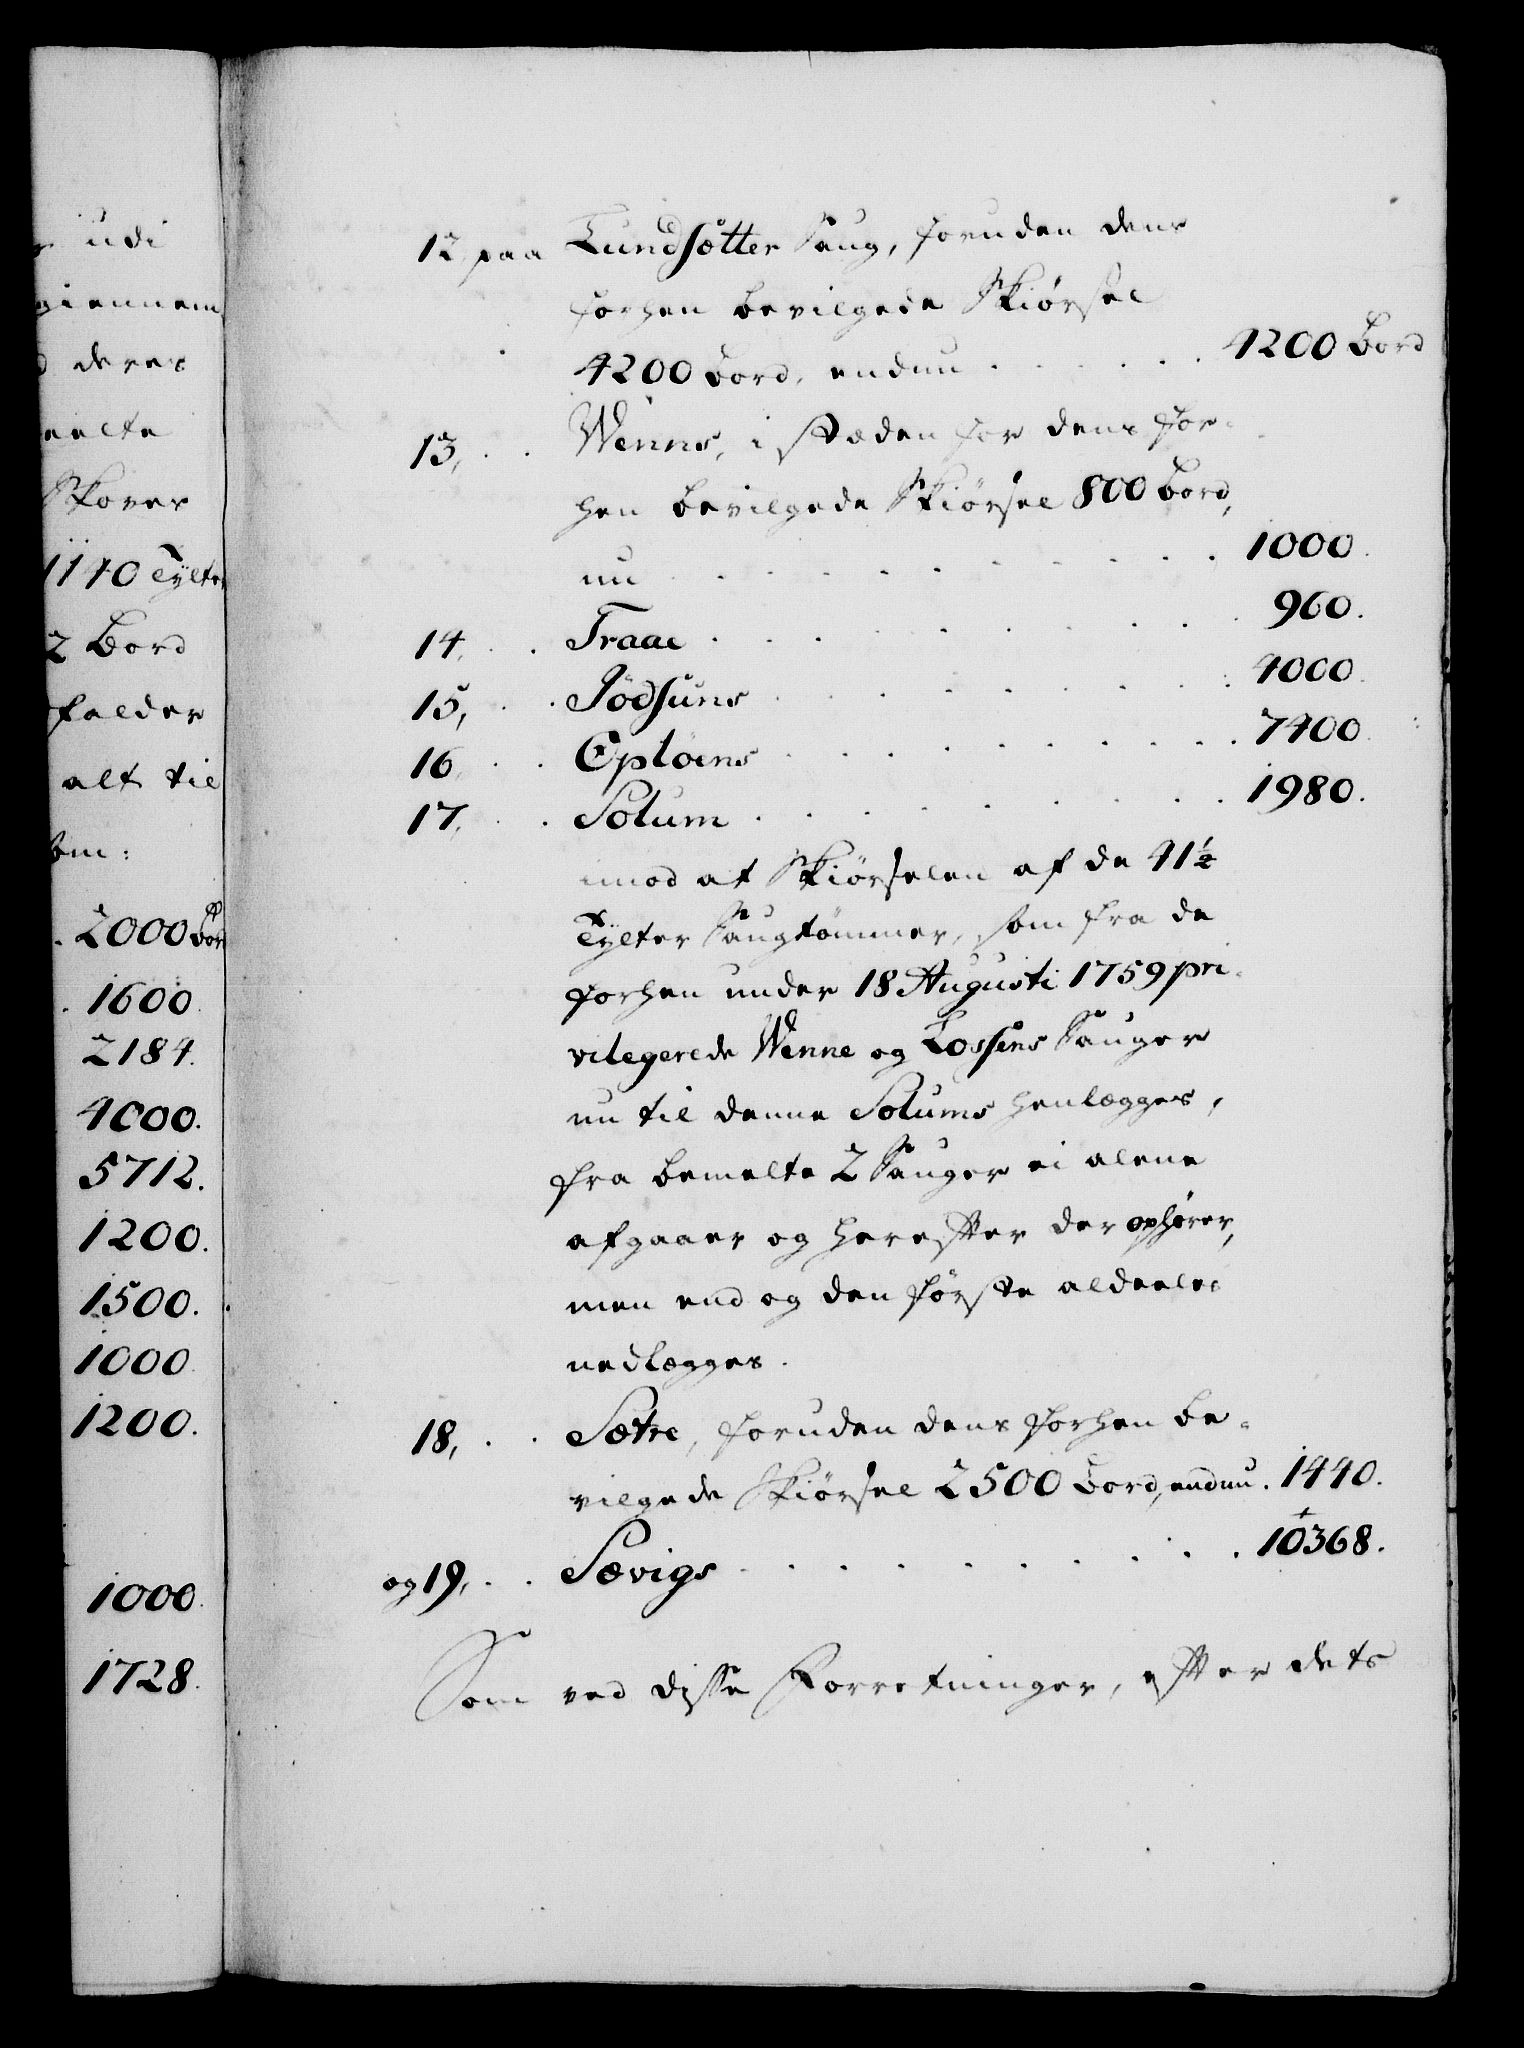 udi
giennem
deres
eelte
Skover
1140 Tylter
2 Bord
falder
alt til
om:
2000 Bor
1600.
2184.
4000.
5712.
1200.
1500.
1000.
1200.
1000.
1728.
12, paa Lundsætter Saug, foruden dens
forhen bevilgede Skiørsel
4200 Bord, endnu . . . . . 4200 Bord
13, . . Wenns, i stæden for dens for-
hen bevilgede Skiørsel 800 Bord,
nu . . . . . . . . . . 1000.
14, . . Traae . . . . . . . . . . 960.
15, . . Jødsuns . . . . . . . . . 4000.
16, . . Opløens . . . . . . . . . 7400.
17, . . Solum . . . . . . . . . 1980.
imod at Skiørselen af de 41½
Tylter Saugtømmer, som fra de
forhen under 18 Augusti 1759 pri-
vilegerede Wenne og Lossens Sauger
nu til denne Solums henlægges,
fra bemelte 2 Sauger ei alene
afgaaer og herefter der ophører,
men end og den første aldeeles
nedlægges.
18, . . Sætre, foruden dens forhen be-
vilgede Skiørsel 2500 Bord, endnu . 1440.
og 19, . . Sævigs . . . . . . . . . 10368.
Som ved disse Forretninger, efter dets